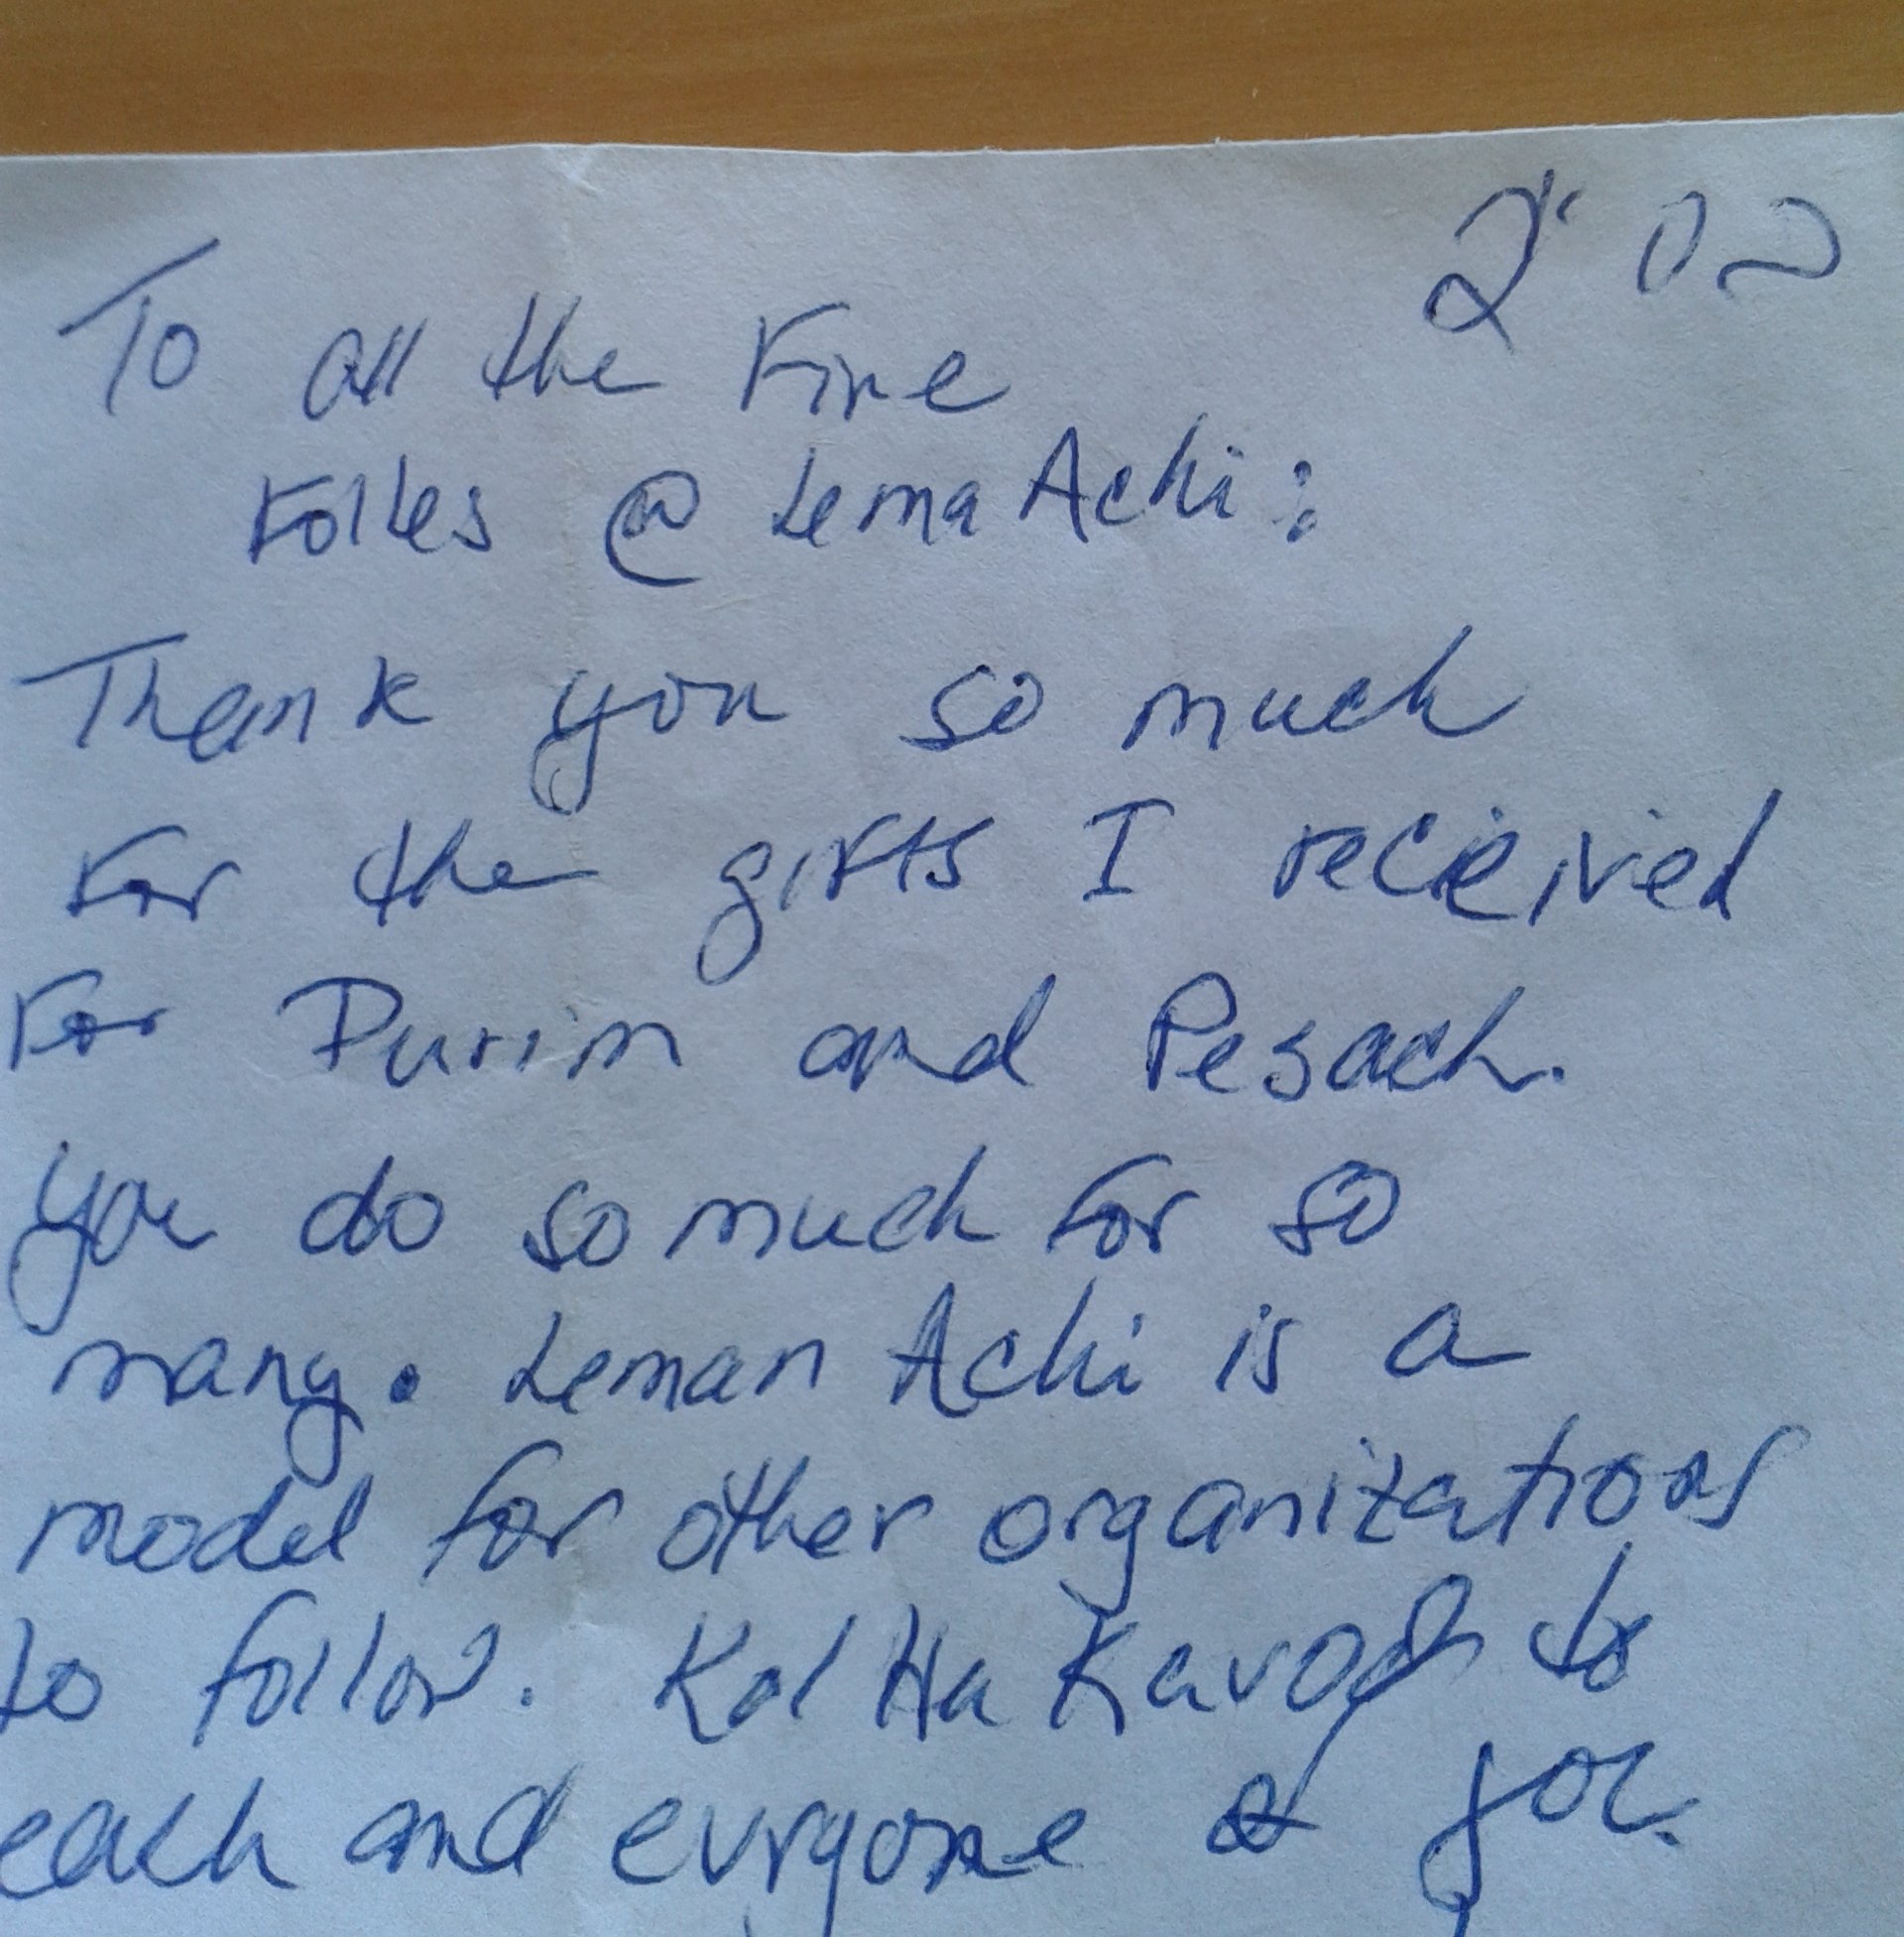 בס"ד
To all the Fine
Folkes @ Lema Achi:
Thank you so much
For the gifts I recieived
For Purim and Pesach.
you do so much for so
many. Leman Achi is a
model for other organizations
to follow. Kol Ha Kavod to
each and evryone of you.